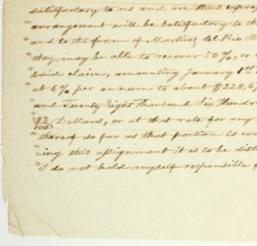 satisfactory to us and are that
arrangement will be satisfactory to th
and to the firm of Martinez del Rio
they may be able to recover 50%, or
said claim, amounting January 1st
at 6% per annum to about $228,6
and Twenty Eight Thousand Six Hundre
Dollars, or at this rate for any
thereof so far as that portion is co
"ing this assignment it is to be dist
"I do not hold myself responsible